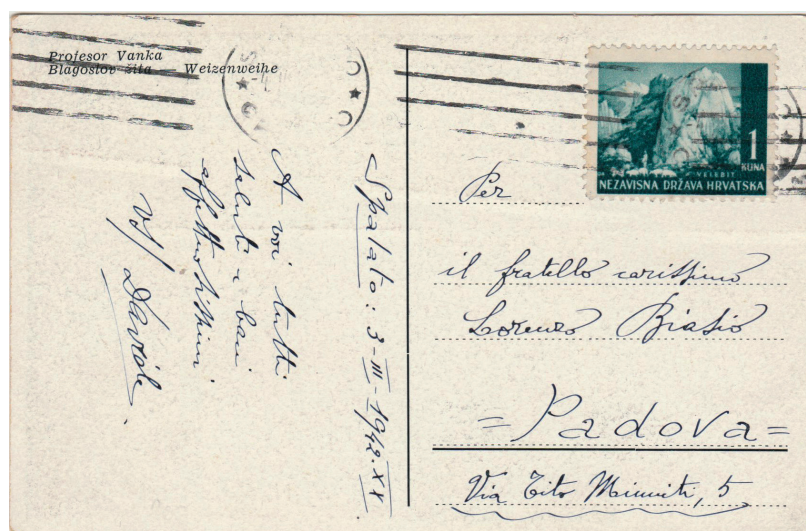 Profesor Vanka
Blagoslov žita Weizenweihe
Spalato: 3-III-1942.XX.
A voi tutti
saluti e baci
affettuosissimi
vs/ Davide.
1
KUNA
VELEBIT
NEZAVISNA DRŽAVA HRVATSKA
Per
il fratello carissimo
Lorenzo Biasio
= Padova =
Via Tito Minniti, 5